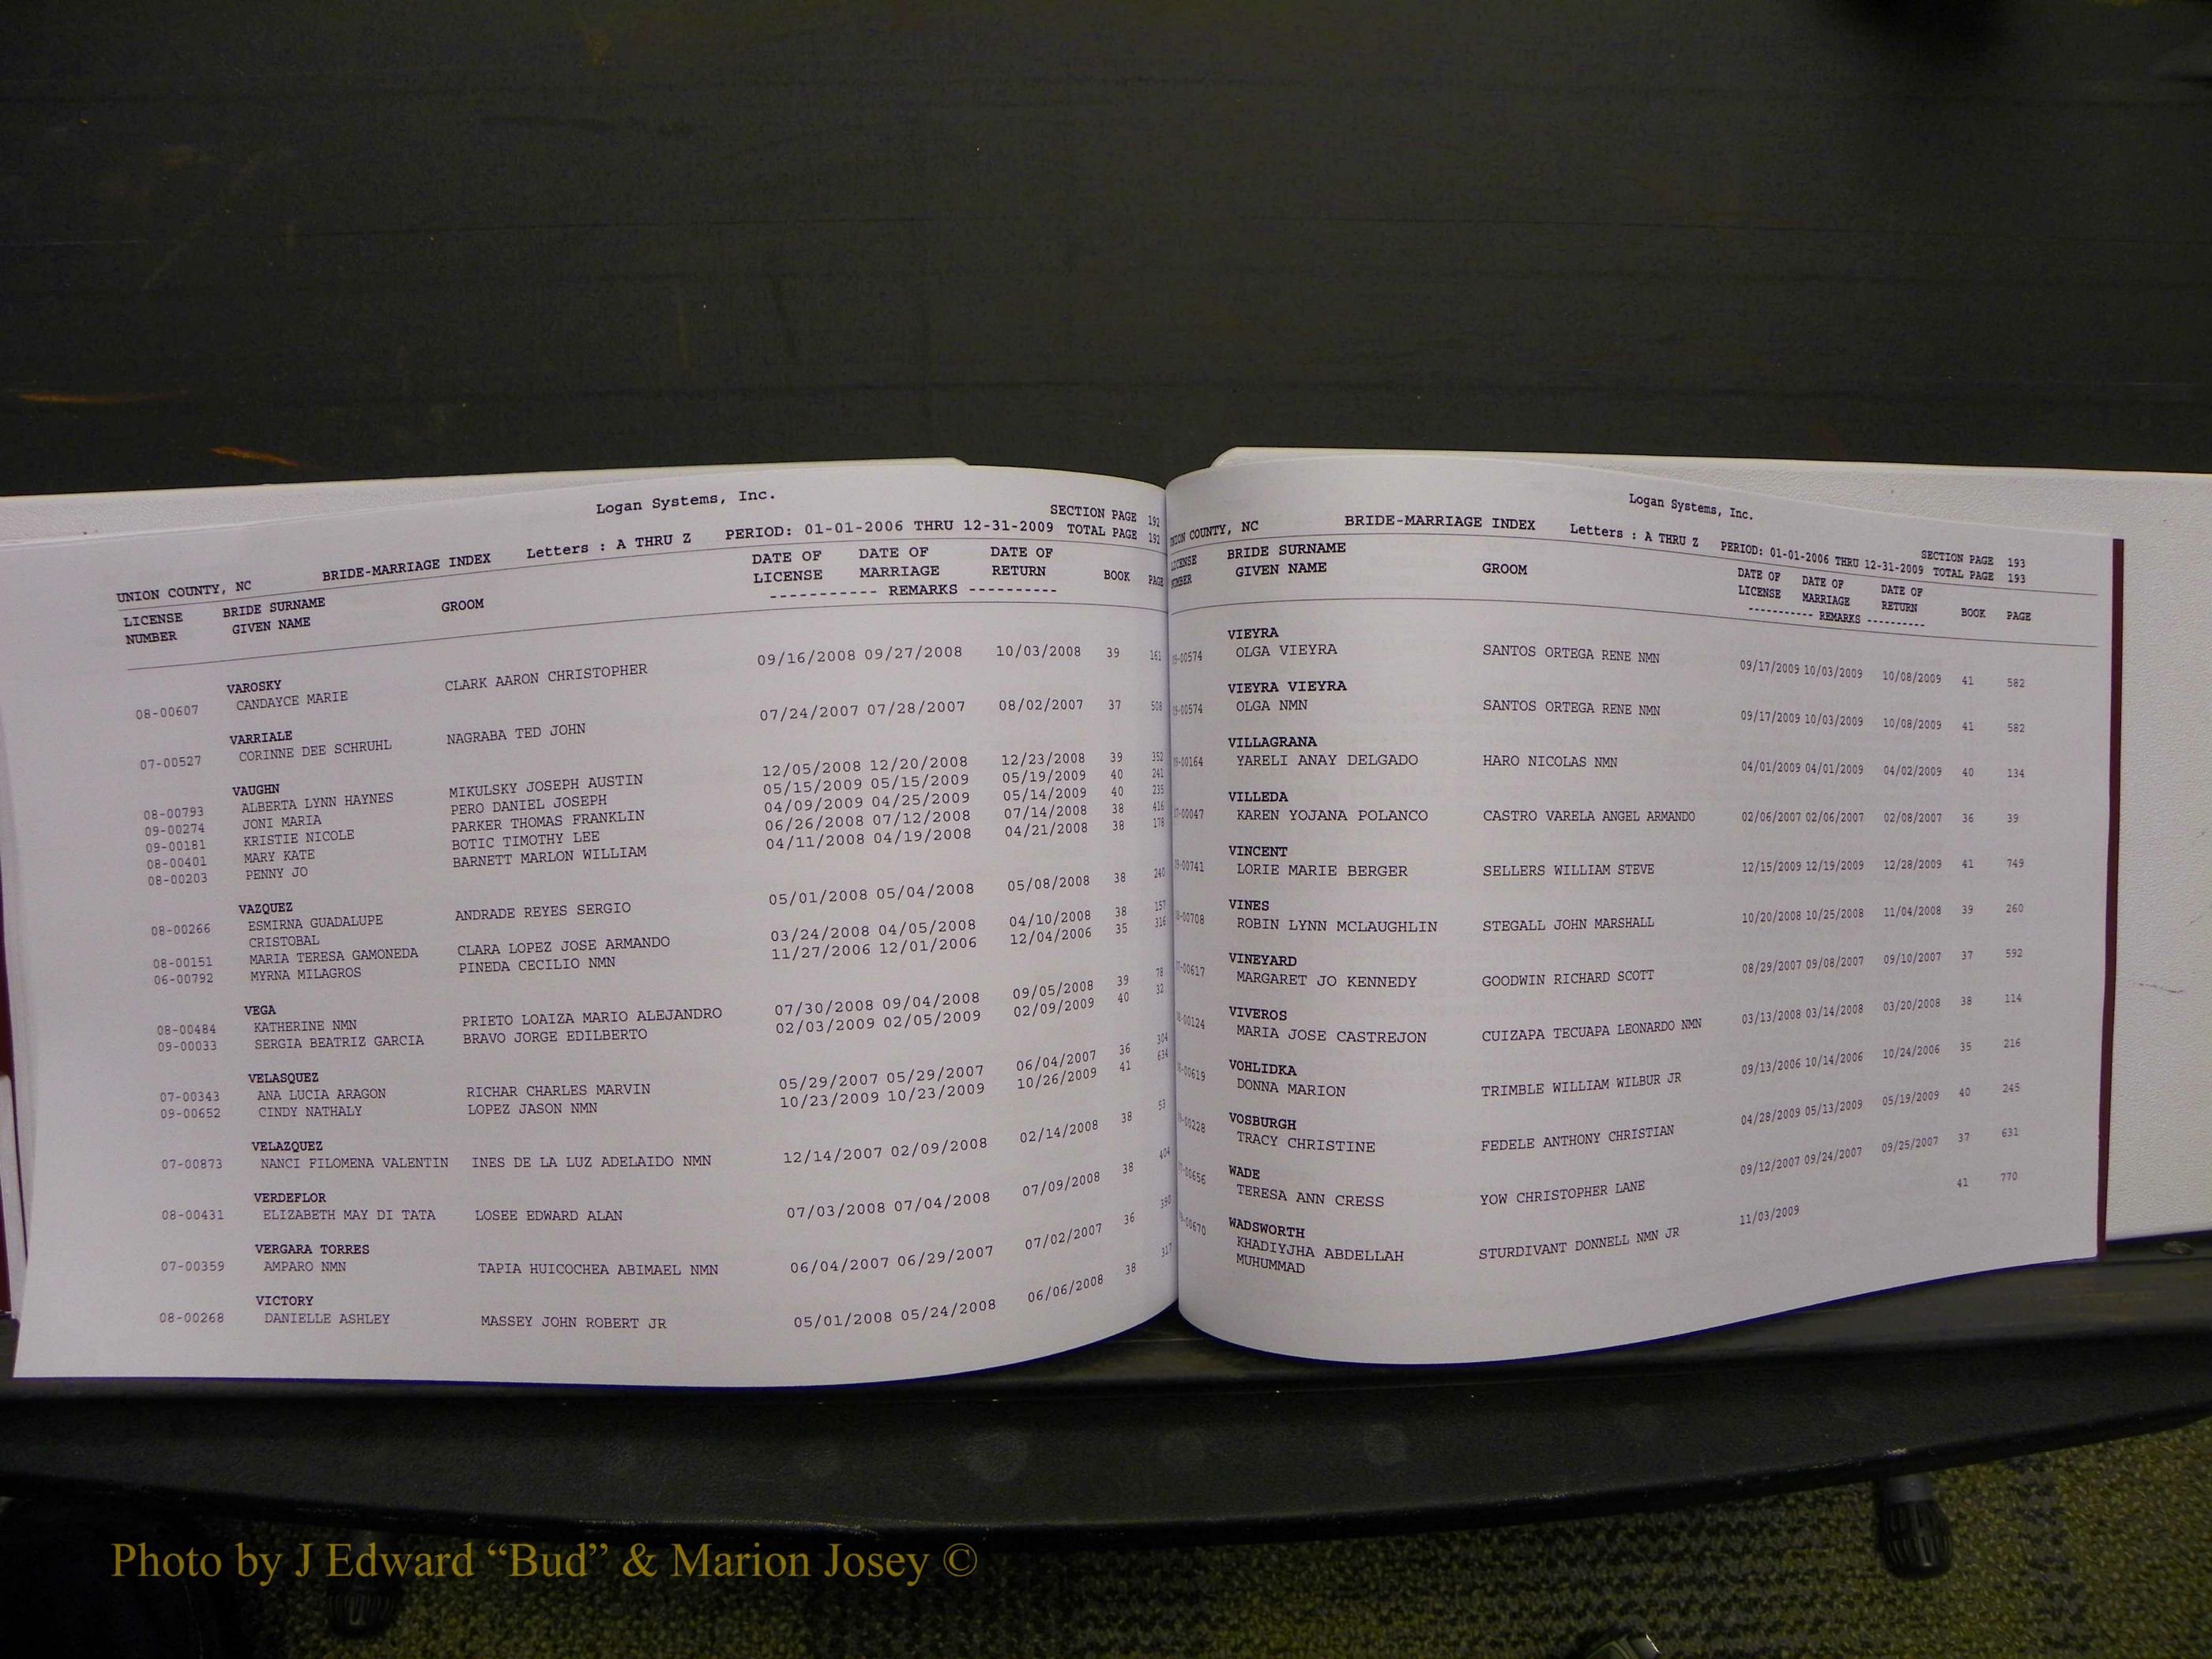 Logan Systems, Inc.
SECTION PAGE 192
UNION COUNTY, NC BRIDE-MARRIAGE INDEX Letters : A THRU Z PERIOD: 01-01-2006 THRU 12-31-2009 TOTAL PAGE 192
LICENSE BRIDE SURNAME GROOM DATE OF DATE OF DATE OF
NUMBER GIVEN NAME LICENSE MARRIAGE RETURN BOOK PAGE
----------- REMARKS ----------
VAROSKY
08-00607 CANDAYCE MARIE CLARK AARON CHRISTOPHER 09/16/2008 09/27/2008 10/03/2008 39 161
VARRIALE
07-00527 CORINNE DEE SCHRUHL NAGRABA TED JOHN 07/24/2007 07/28/2007 08/02/2007 37 508
VAUGHN
08-00793 ALBERTA LYNN HAYNES MIKULSKY JOSEPH AUSTIN 12/05/2008 12/20/2008 12/23/2008 39 352
09-00274 JONI MARIA PERO DANIEL JOSEPH 05/15/2009 05/15/2009 05/19/2009 40 241
09-00181 KRISTIE NICOLE PARKER THOMAS FRANKLIN 04/09/2009 04/25/2009 05/14/2009 40 235
08-00401 MARY KATE BOTIC TIMOTHY LEE 06/26/2008 07/12/2008 07/14/2008 38 416
08-00203 PENNY JO BARNETT MARLON WILLIAM 04/11/2008 04/19/2008 04/21/2008 38 178
VAZQUEZ
08-00266 ESMIRNA GUADALUPE ANDRADE REYES SERGIO 05/01/2008 05/04/2008 05/08/2008 38 240
CRISTOBAL
08-00151 MARIA TERESA GAMONEDA CLARA LOPEZ JOSE ARMANDO 03/24/2008 04/05/2008 04/10/2008 38 157
06-00792 MYRNA MILAGROS PINEDA CECILIO NMN 11/27/2006 12/01/2006 12/04/2006 35 316
VEGA
08-00484 KATHERINE NMN PRIETO LOAIZA MARIO ALEJANDRO 07/30/2008 09/04/2008 09/05/2008 39 78
09-00033 SERGIA BEATRIZ GARCIA BRAVO JORGE EDILBERTO 02/03/2009 02/05/2009 02/09/2009 40 32
VELASQUEZ
07-00343 ANA LUCIA ARAGON RICHAR CHARLES MARVIN 05/29/2007 05/29/2007 06/04/2007 36 304
09-00652 CINDY NATHALY LOPEZ JASON NMN 10/23/2009 10/23/2009 10/26/2009 41 634
VELAZQUEZ
07-00873 NANCI FILOMENA VALENTIN INES DE LA LUZ ADELAIDO NMN 12/14/2007 02/09/2008 02/14/2008 38 53
VERDEFLOR
08-00431 ELIZABETH MAY DI TATA LOSEE EDWARD ALAN 07/03/2008 07/04/2008 07/09/2008 38 404
VERGARA TORRES
07-00359 AMPARO NMN TAPIA HUICOCHEA ABIMAEL NMN 06/04/2007 06/29/2007 07/02/2007 36 390
VICTORY
08-00268 DANIELLE ASHLEY MASSEY JOHN ROBERT JR 05/01/2008 05/24/2008 06/06/2008 38 317
Logan Systems, Inc.
SECTION PAGE 193
COUNTY, NC BRIDE-MARRIAGE INDEX Letters : A THRU Z PERIOD: 01-01-2006 THRU 12-31-2009 TOTAL PAGE 193
LICENSE BRIDE SURNAME GROOM DATE OF DATE OF DATE OF
GIVEN NAME LICENSE MARRIAGE RETURN BOOK PAGE
----------- REMARKS ----------
VIEYRA
-00574 OLGA VIEYRA SANTOS ORTEGA RENE NMN 09/17/2009 10/03/2009 10/08/2009 41 582
VIEYRA VIEYRA
-00574 OLGA NMN SANTOS ORTEGA RENE NMN 09/17/2009 10/03/2009 10/08/2009 41 582
VILLAGRANA
-00164 YARELI ANAY DELGADO HARO NICOLAS NMN 04/01/2009 04/01/2009 04/02/2009 40 134
VILLEDA
-00047 KAREN YOJANA POLANCO CASTRO VARELA ANGEL ARMANDO 02/06/2007 02/06/2007 02/08/2007 36 39
VINCENT
-00741 LORIE MARIE BERGER SELLERS WILLIAM STEVE 12/15/2009 12/19/2009 12/28/2009 41 749
VINES
-00708 ROBIN LYNN MCLAUGHLIN STEGALL JOHN MARSHALL 10/20/2008 10/25/2008 11/04/2008 39 260
VINEYARD
-00617 MARGARET JO KENNEDY GOODWIN RICHARD SCOTT 08/29/2007 09/08/2007 09/10/2007 37 592
VIVEROS
-00124 MARIA JOSE CASTREJON CUIZAPA TECUAPA LEONARDO NMN 03/13/2008 03/14/2008 03/20/2008 38 114
VOHLIDKA
-00619 DONNA MARION TRIMBLE WILLIAM WILBUR JR 09/13/2006 10/14/2006 10/24/2006 35 216
VOSBURGH
-00228 TRACY CHRISTINE FEDELE ANTHONY CHRISTIAN 04/28/2009 05/13/2009 05/19/2009 40 245
WADE
-00656 TERESA ANN CRESS YOW CHRISTOPHER LANE 09/12/2007 09/24/2007 09/25/2007 37 631
WADSWORTH
-00670 KHADIYJHA ABDELLAH STURDIVANT DONNELL NMN JR 11/03/2009 41 770
MUHUMMAD
Photo by J Edward “Bud” & Marion Josey ©